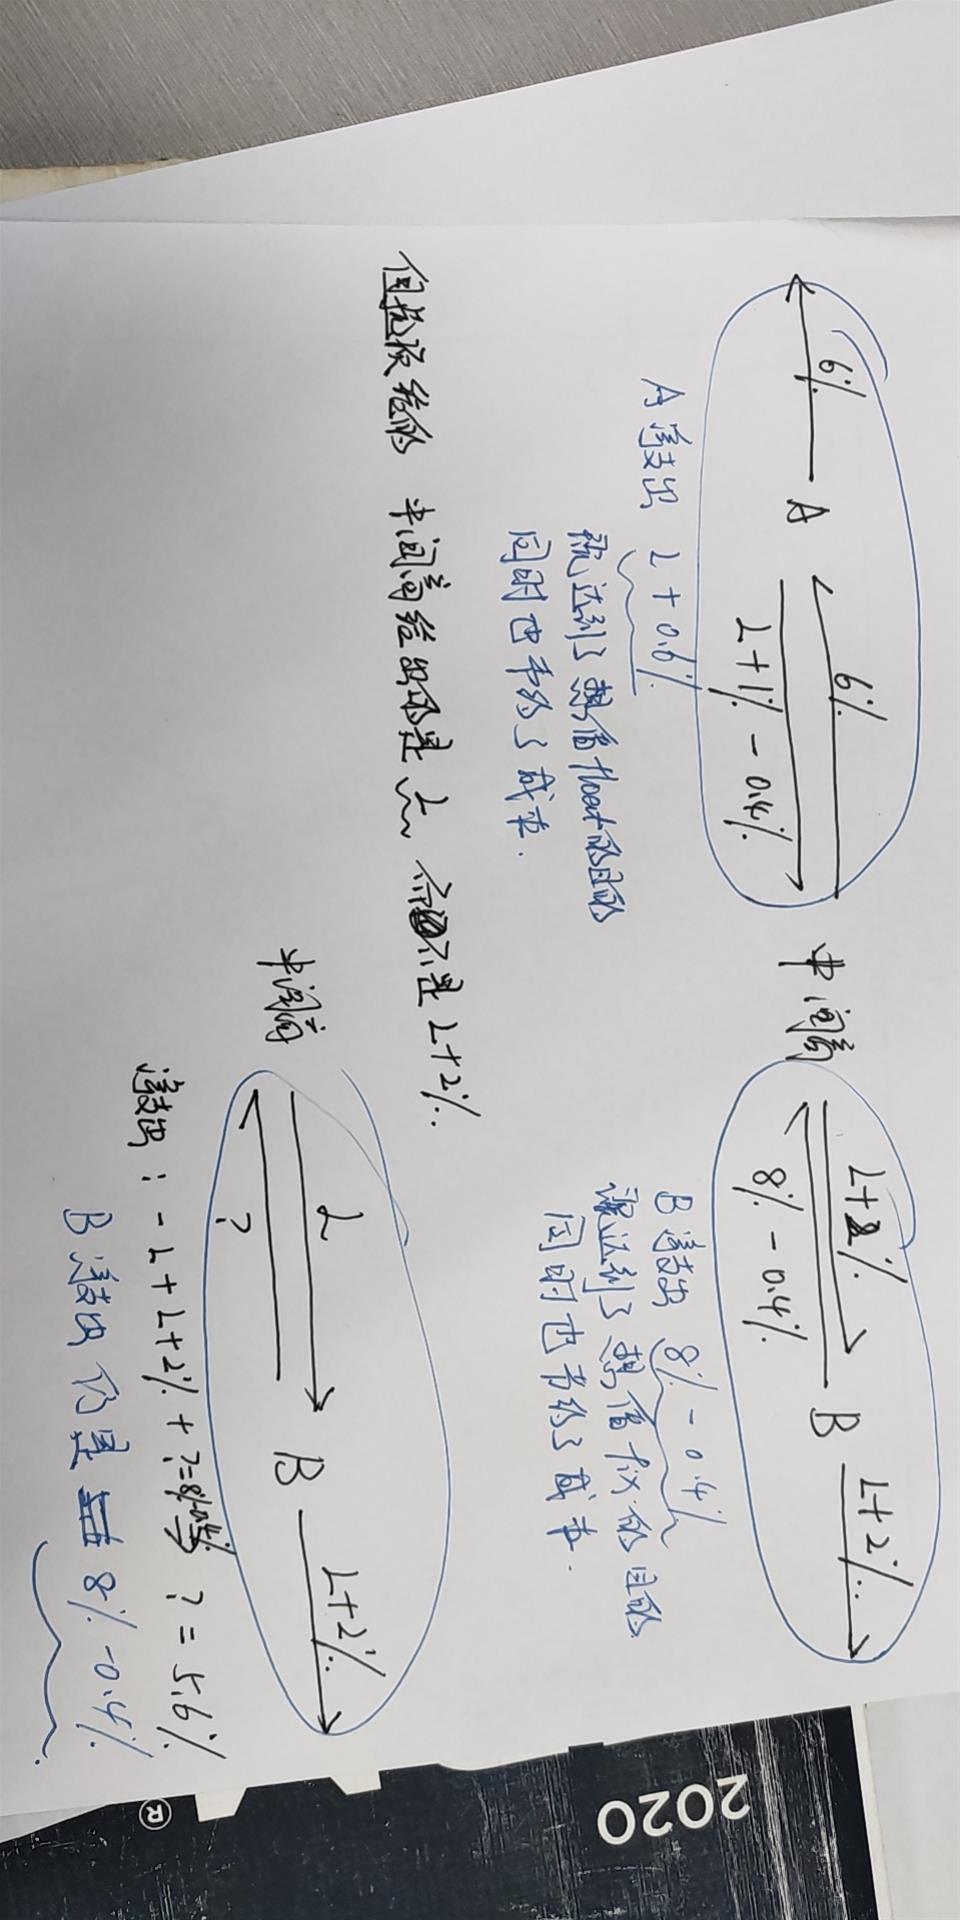 6%
A
6%
L+1% - 0.4%
中间商
L+2%
8% - 0.4%
B
L+2%
A 净支出 L+0.6%
就达到了想借float的目的
同时也节约了成本.
B 净支出 8% - 0.4%
就达到了想借fix的目的
同时也节约了成本.
但这次给的 中间商给出的是 L 而不是 L+2%.
中间商
L
?
B
L+2%
净支出: - L + L+2% + ?=8%-0.4% ? = 5.6%
B 净支出 仍是 8% -0.4%.
2020
®